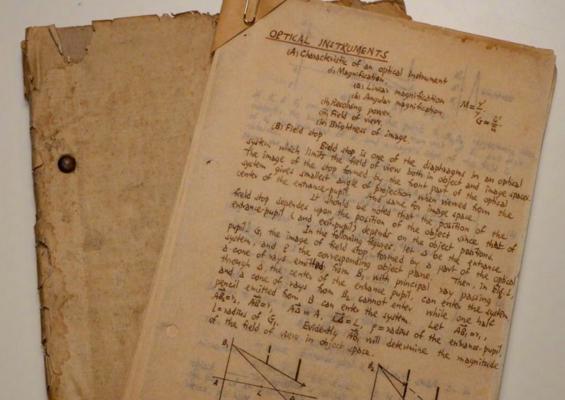 OPTICAL INSTRUMENTS
(A) Characteristic of an optical Instrument
Magnification
Linear magnification
Angular magnification
Resolving power
Field of view
Brightness of image
(B) Field stop
Field stop is one of the diaphragms in an optical
system which limits the field of view both in object and image spaces.
The image of the stop formed by the front part of the optical
system gives smallest angle of projection when viewed from the
center of the entrance-pupil. The same for image space.
It should be noted that the position of the
field stop depends upon the position of the object since that of
entrance-pupil (and exit-pupil) depends on the object positions.
In the following figures, let A be the entrance
pupil, G, the image of field stop formed by a part of the optical
system, and the corresponding object plane. Then, in Fig. 1,
a cone of rays emitted from B, with principal ray passing
through A the center of the entrance pupil, can enter the system
and a cone of rays from B₂ cannot enter while one half
pencil emitted from B can enter the system. Let
= radius of the entrance-pupil,
= radius of G₁. Evidently, will determine the magnitude
of the field of view in object space.
B₁
B₂
A
L